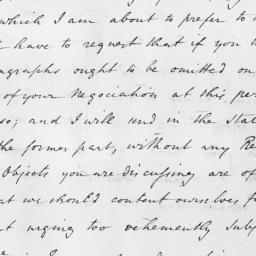 which I am about to prefer to
have to request that if you
agraphs ought to be omitted on
of your Negociation at this per
so; and I will send in the Stat
the former part, without any Re
Objects you are discussing are of
at we should content ourselves f
t urging too vehemently Subj